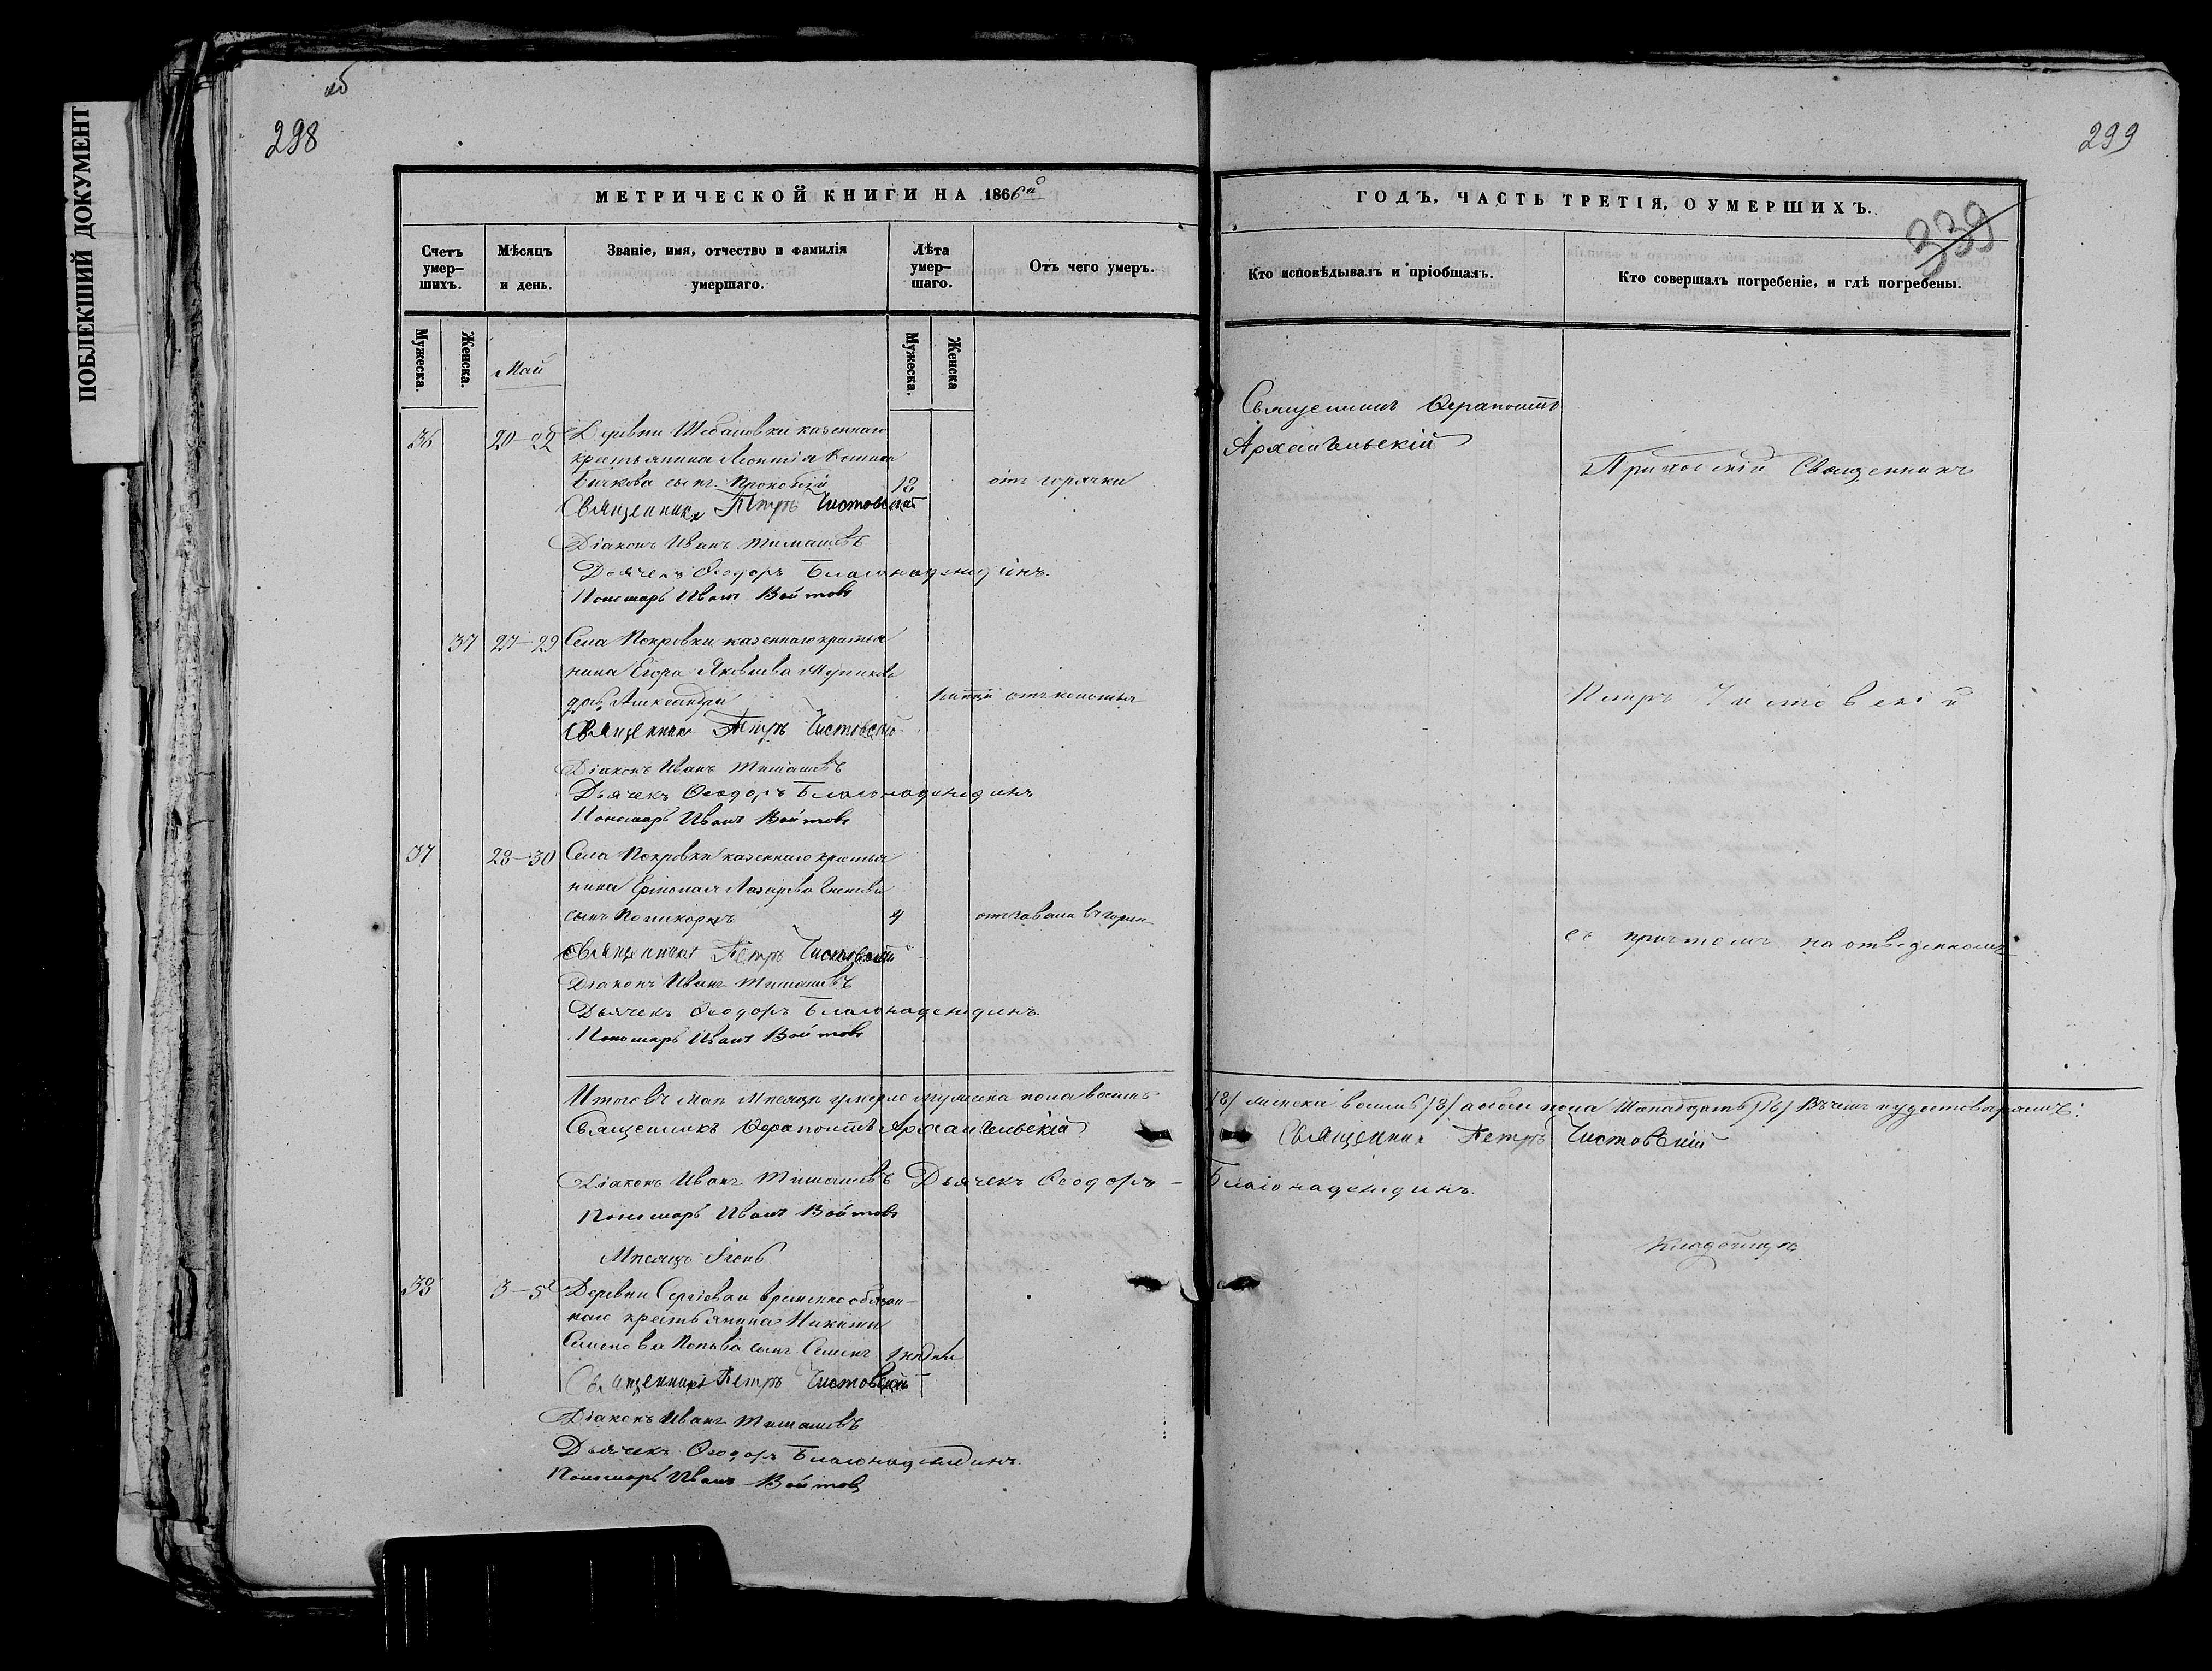 ПОБЛЕКШИЙ ДОКУМЕНТ
об
298
МЕТРИЧЕСКОЙ КНИГИ НА 1866й
Счетъ умер-
шихъ.
Мѣсяцъ
и день.
Званіе, имя, отчество и фамилія
умершаго.
Лѣта
умер-
шаго.
Отъ чего умеръ.
Мужеска.
Женска.
Май
Мужеска.
Женска
36 20-22 Деревни казеннаго
крестьянина Леонтія
Бычкова сынъ Прокопій 12 отъ горячки
Священникъ Петръ Чистовскій
Діаконъ Иванъ Тимашевъ
Дьячекъ Ѳеодоръ Благонадеждинъ.
Пономарь Иванъ Войтовъ
37 27-29 Села Покровки казеннаго крестья
нина Егора Яковлева
дочь Александра
Священникъ Петръ Чистовскій
Діаконъ Иванъ Тимашевъ
Дьячекъ Ѳеодоръ Благонадеждинъ
Пономарь Иванъ Войтовъ
37 28-30 Села Покровки казеннаго крестья
нина Ермолая Лазарева
сынъ Поликарпъ 4
Священникъ Петръ Чистовскій
Діаконъ Иванъ Тимашевъ
Дьячекъ Ѳеодоръ Благонадеждинъ.
Пономарь Иванъ Войтовъ
Итого въ Маѣ Мѣсяцѣ умерло мужеска пола восмь
Священникъ Ѳерапонтъ Архангельскій
Діаконъ Иванъ Тимашевъ Дьячекъ Ѳеодоръ -
Пономарь Иванъ Войтовъ
Мѣсяцъ Іюнь
38 3-5 Деревни Сергіевки временно обязан-
наго крестьянина Никиты
Семенова Попова сынъ Семенъ
Священникъ Петръ Чистовскій
Діаконъ Иванъ Тимашевъ
Дьячекъ Ѳеодоръ Благонадеждинъ.
Пономарь Иванъ Войтовъ
299
ГОДЪ, ЧАСТЬ ТРЕТІЯ, О УМЕРШИХЪ.
339
Кто исповѣдывалъ и пріобщалъ.
Кто совершалъ погребеніе, и гдѣ погребены.
Священникъ Ѳерапонтъ
Архангельскій
Приходскій Священникъ
Петръ Чистовскій
съ причтомъ на отведенномъ
/8/ женска восмь /8/ обоего пола шестнадцать /16/ въ чемъ и удостовѣряемъ:
Священникъ Петръ Чистовскій
Благонадеждинъ.
Кладбищѣ